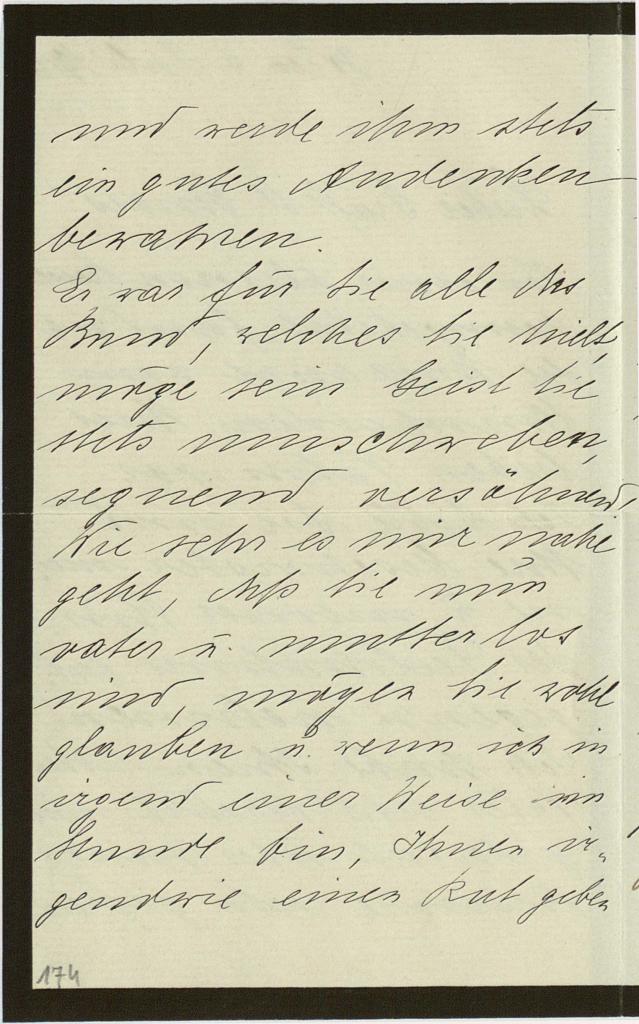 und werde ihm stets
ein gutes Andenken
bewahren.
Er war für Sie alle das
Band, welches Sie hielt,
möge sein Geist Sie
stets umschweben,
segnend, versöhnend.
Wie sehr es mir nahe
geht, daß Sie nun
vater u. mutterlos
sind, mögen Sie wohl
glauben u. wenn ich in
irgend einer Weise im
Stande bin, Ihnen ir-
gendwie einen Rat geben
174